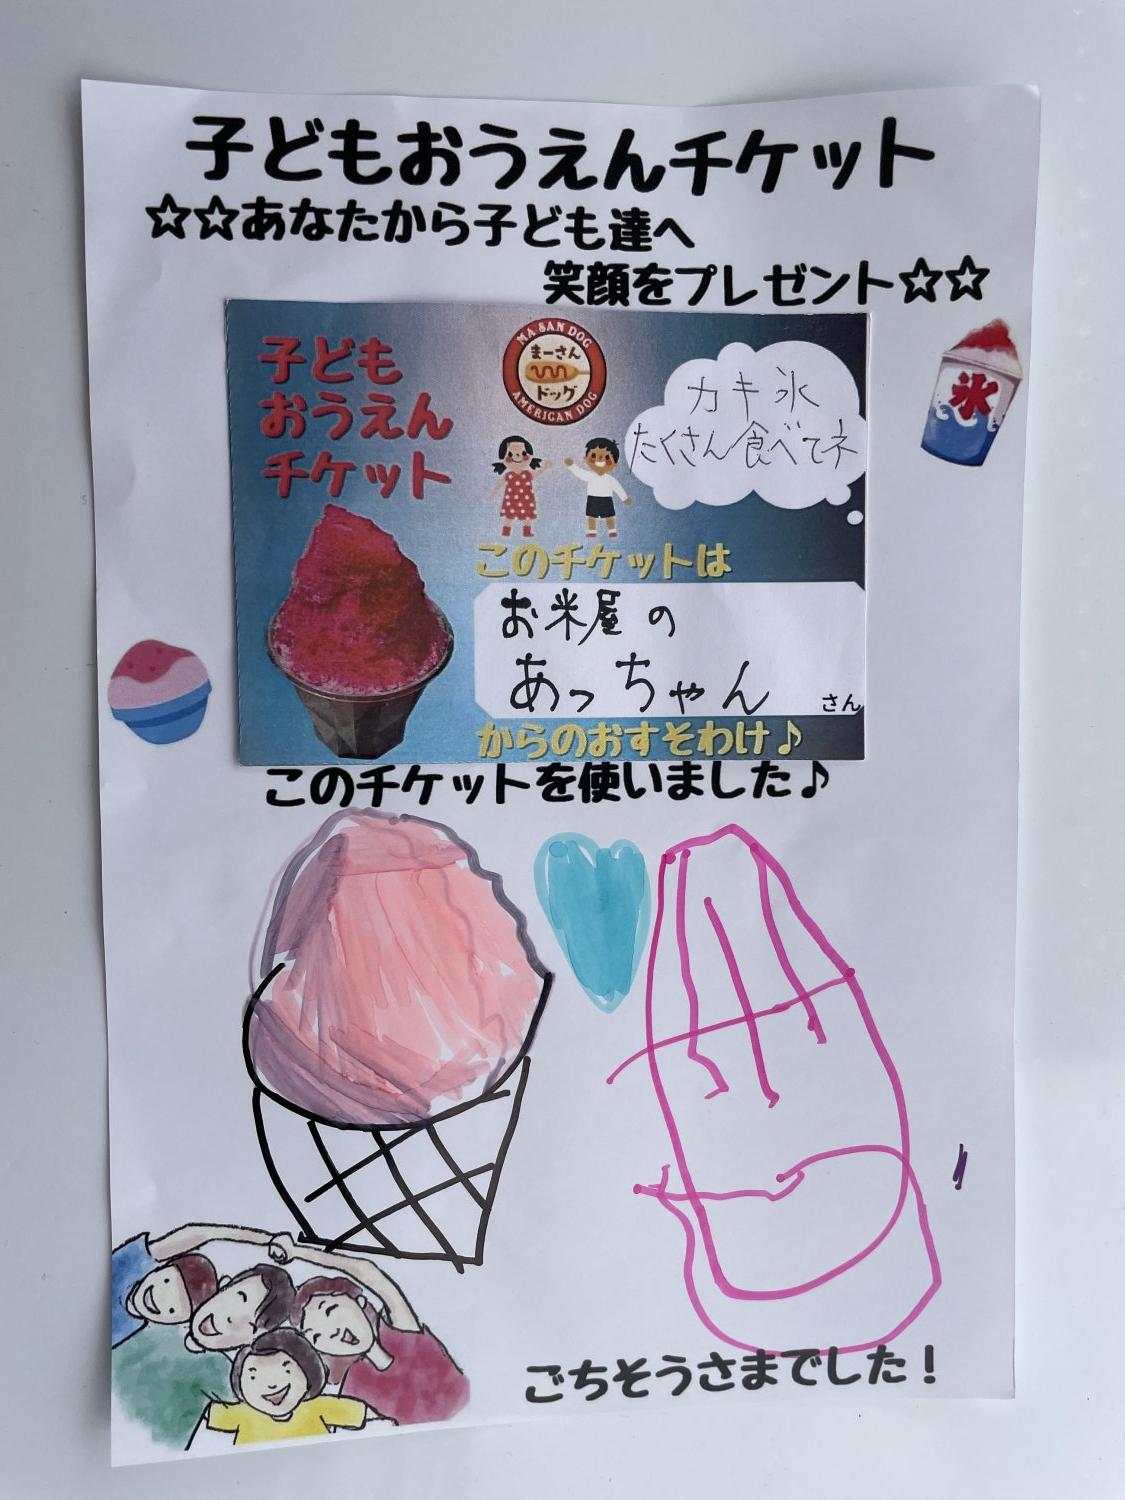 子どもおうえんチケット
☆☆あなたから子ども達へ
笑顔をプレゼント☆☆
子ども
おうえん
チケット
MA SAN DOG
まーさん
ドッグ
AMERICAN DOG
カキ氷
たくさん食べてネ
氷
このチケットは
お米屋の
あっちゃん さん
からのおすそわけ♪
このチケットを使いました♪
ごちそうさまでした！